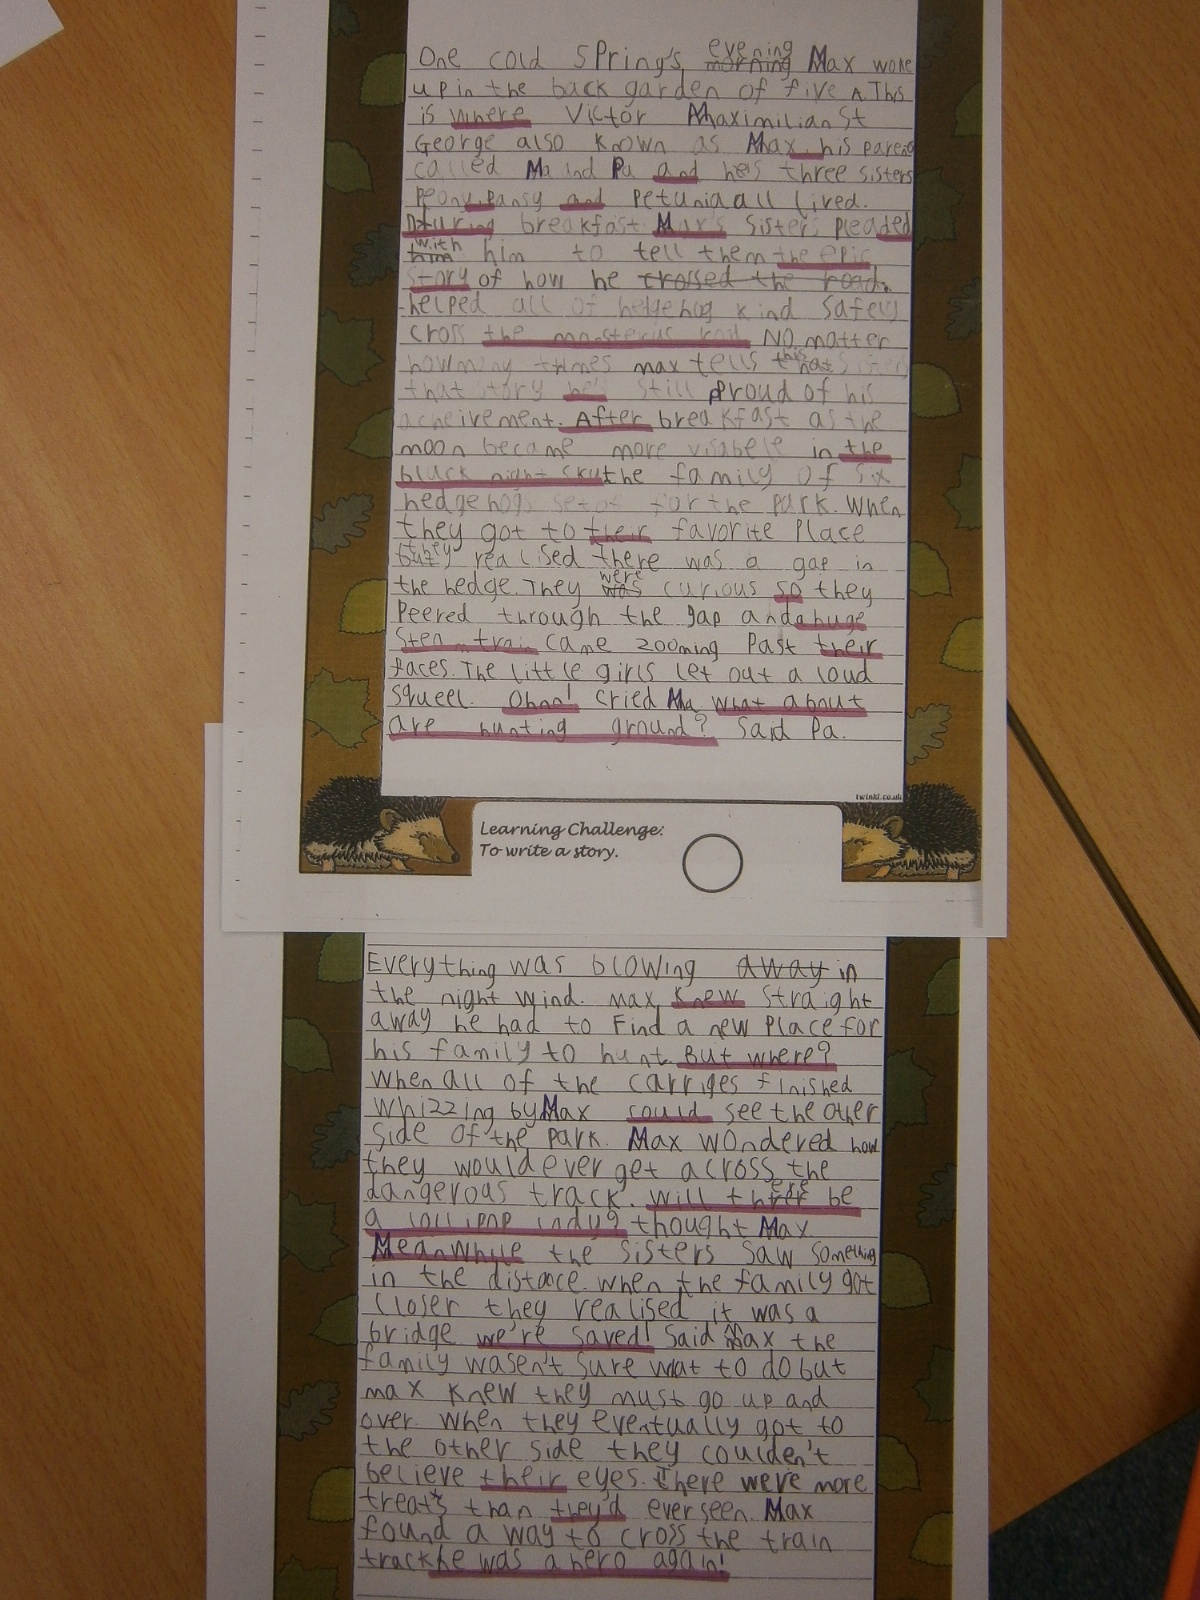 One cold Spring's evening morning Max woke
up in the back garden of five ^. This
is where Victor Maximilian St
George also known as Max, his parents
called Ma and Pa and his three sisters
Peony, Pansy and Petunia all lived.
During breakfast Max's sisters pleaded
with him him to tell them the epic
story of how he crossed the road
helped all of hedgehog kind safely
cross the monsterus road. No matter
how many times max tells this
that story he's still proud of his
acheivement. After breakfast as the
moon became more visabele in the
black night sky the family of six
hedgehogs set of for the park. When
they got to their favorite place
they but realised there was a gap in
the hedge. They were was curious so they
peered through the gap and a huge
steam train came zooming past their
faces. The little girls let out a loud
squeel. Oh no! cried Ma. What about
are hunting ground? Said Pa.
twinkl.co.uk
Learning Challenge:
To write a story.
Everything was blowing away in
the night wind. max knew straight
away he had to find a new place for
his family to hunt. But where?
When all of the carriges finished
whizzing by Max could see the other
side of the park. Max wondered how
they would ever get across the
dangerous track. Will there be
a lollipop lady? thought Max
Meanwhile the sisters saw something
in the distace. when the family got
closer they realised it was a
bridge we're saved! Said Max the
family wasen't sure what to do but
max knew they must go up and
over. When they eventually got to
the other side they coulden't
believe their eyes. There were more
treats than they'd ever seen. Max
found a way to cross the train
track he was a hero again!